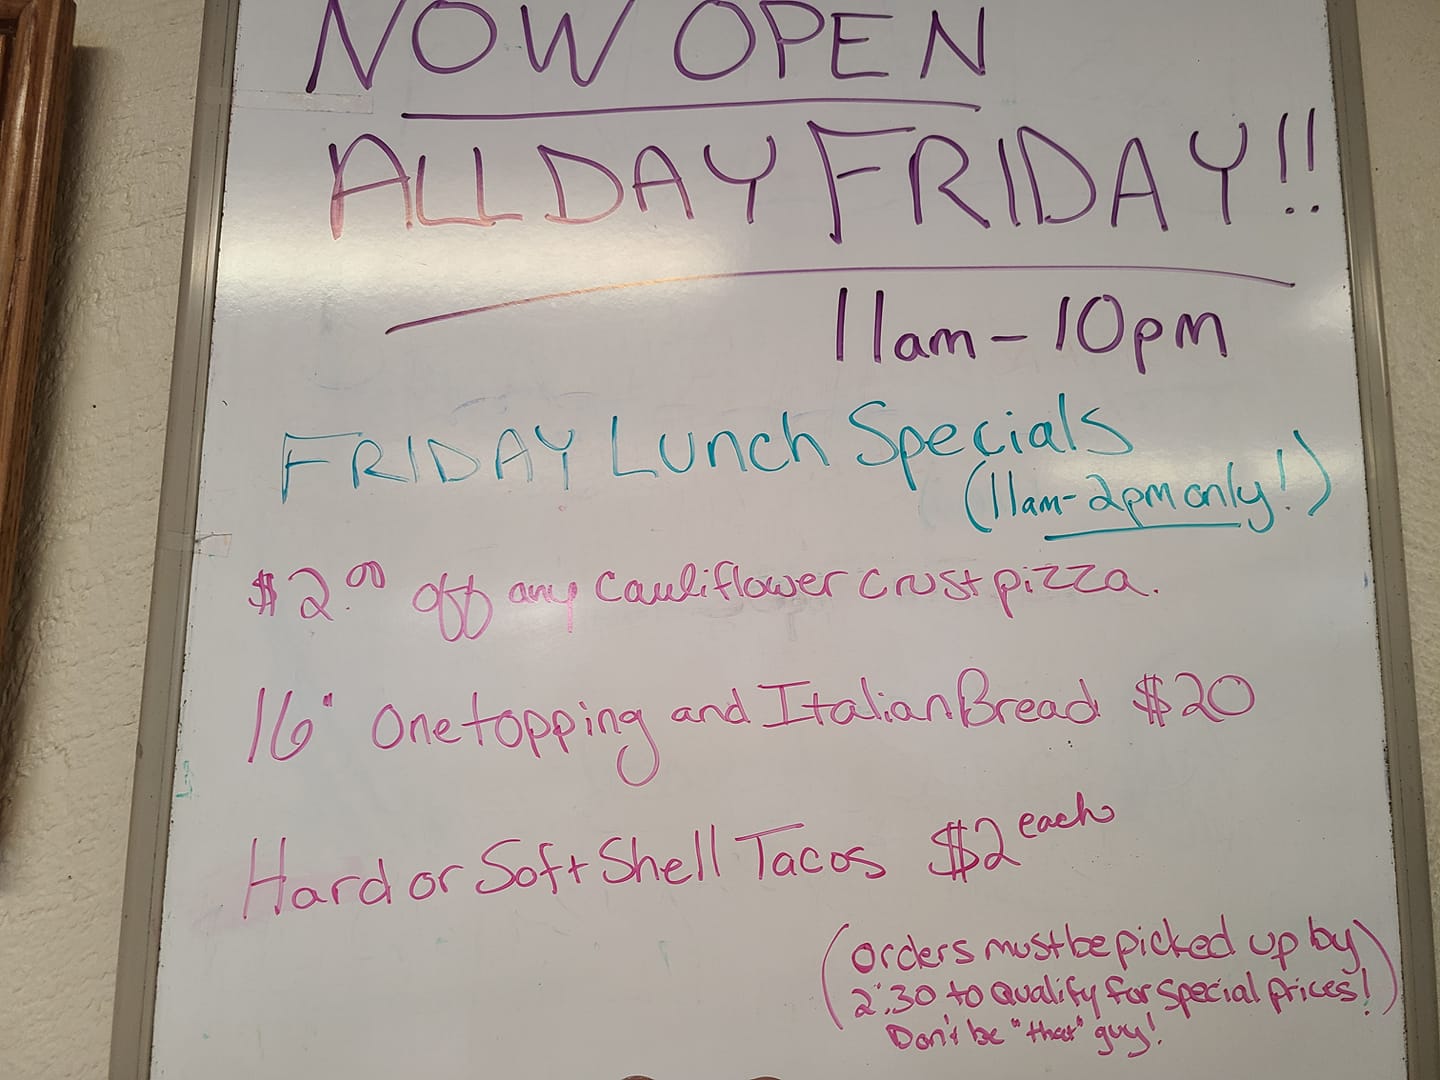 NOW OPEN
ALL DAY FRIDAY!!
11am - 10pm
FRIDAY Lunch Specials
(11am - 2pm only!)
$2.00 off any cauliflower crust pizza.
16" One topping and Italian Bread $20
Hard or Soft Shell Tacos $2 each
(Orders must be picked up by
2:30 to Qualify for special prices!)
Don't be "that" guy!